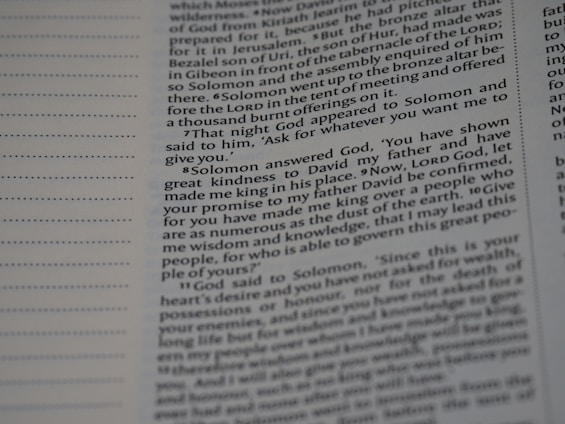 which Moses
wilderness. ⁴Now David
of God from Kiriath Jearim to
prepared for it, because he had pitched
for it in Jerusalem. ⁵But the bronze altar that
Bezalel son of Uri, the son of Hur, had made was
in Gibeon in front of the tabernacle of the LORD;
so Solomon and the assembly enquired of him
there. ⁶Solomon went up to the bronze altar be-
fore the LORD in the tent of meeting and offered
a thousand burnt offerings on it.
⁷That night God appeared to Solomon and
said to him, ‘Ask for whatever you want me to
give you.’
⁸Solomon answered God, ‘You have shown
great kindness to David my father and have
made me king in his place. ⁹Now, LORD God, let
your promise to my father David be confirmed,
for you have made me king over a people who
are as numerous as the dust of the earth. ¹⁰Give
me wisdom and knowledge, that I may lead this
people, for who is able to govern this great peo-
ple of yours?’
¹¹God said to Solomon, ‘Since this is your
heart's desire and you have not asked for wealth,
possessions or honour, nor for the death of
your enemies, and since you have not asked for a
long life but for wisdom and knowledge to gov-
ern my people over whom I have made you king,
¹²therefore wisdom and knowledge will be given
you. And I will also give you wealth, possessions
and honour, such as no king who was before you
ever had and none after you will have.’
Solomon went to Jerusalem from the